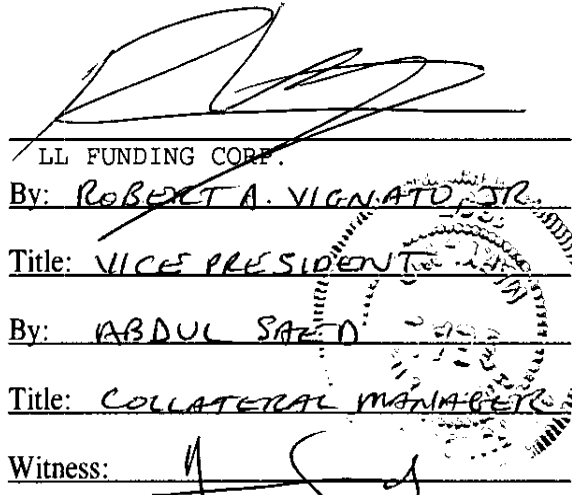 LL FUNDING CORP.
By: ROBERT A. VIGNATO, JR.
Title: VICE PRESIDENT
By: ABDUL SAED
Title: COLLATERAL MANAGER
Witness: